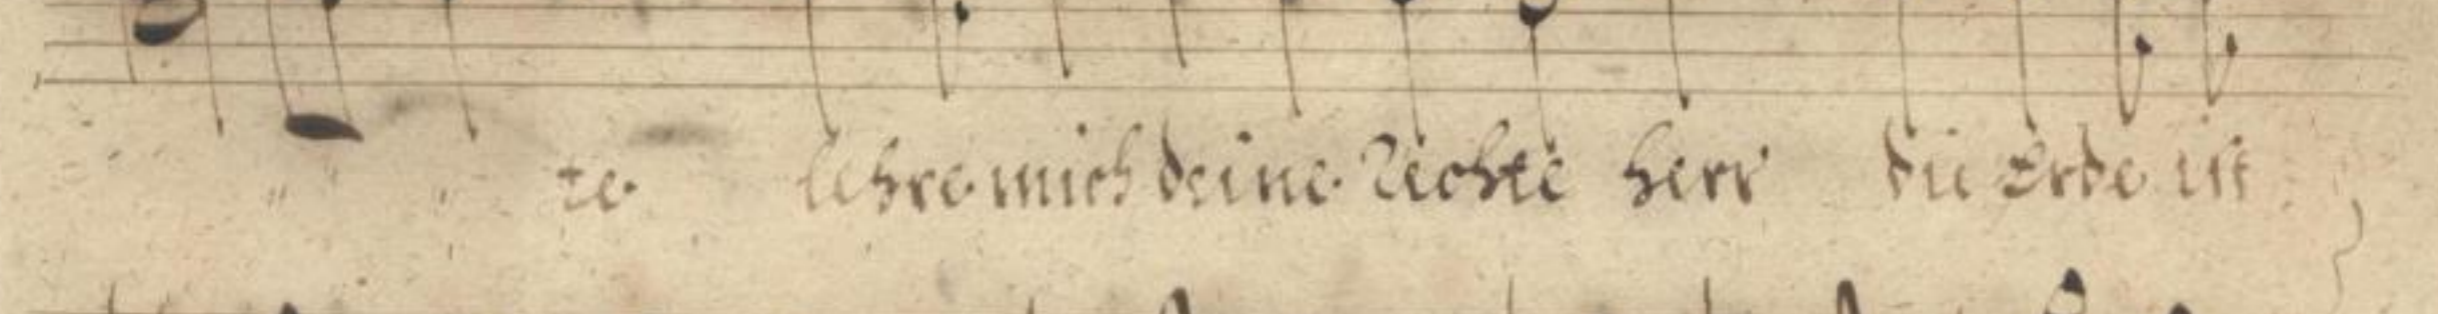 te lehre mich deine Rechte herr die Erde ist